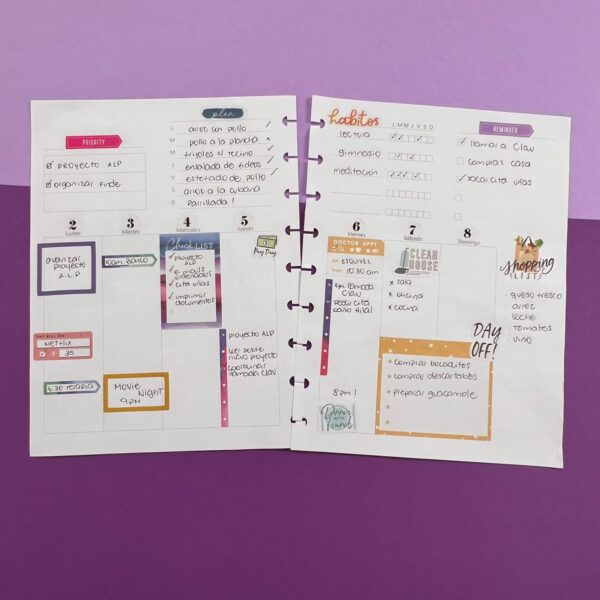 PRIORITY
PROYECTO ALP
organizar finde
plan
L arroz con pollo
M pollo a la plancha
M frijoles c/ tocino
J ensalada de fideos
V estofado de pollo
S arroz a la cubana
D Parrillada!
habitos
S L M M J V S D
lectura
gimnasio
meditación
REMINDER
llamar a Clau
comprar casa
sacar cita uñas
2
Lunes
avanzar
proyecto
A.L.P
NETFLIX
35
6:30 TERAPIA
3
Martes
10am BANCO
MOVIE
NIGHT
9 PM
4
Miércoles
Check LIST
proyecto
ALP
e-mails
cita uñas
imprimir
documentos
5
Jueves
Pay Day
proyecto ALP
leer sobre
nuevo proyecto
coordinar
llamada Clau
6
Viernes
DOCTOR APPT
ESQUIVEL
10:30 am
4pm llamada
Clau
pedir cita
baño Hilal
8 PM!
7
Sábado
CLEAN
HOUSE
x sala
x oficina
x cocina
8
Domingo
DAY
OFF!
comprar bocaditos
comprar descartables
preparar guacamole
shopping
LIST
queso fresco
arroz
leche
tomates
vino